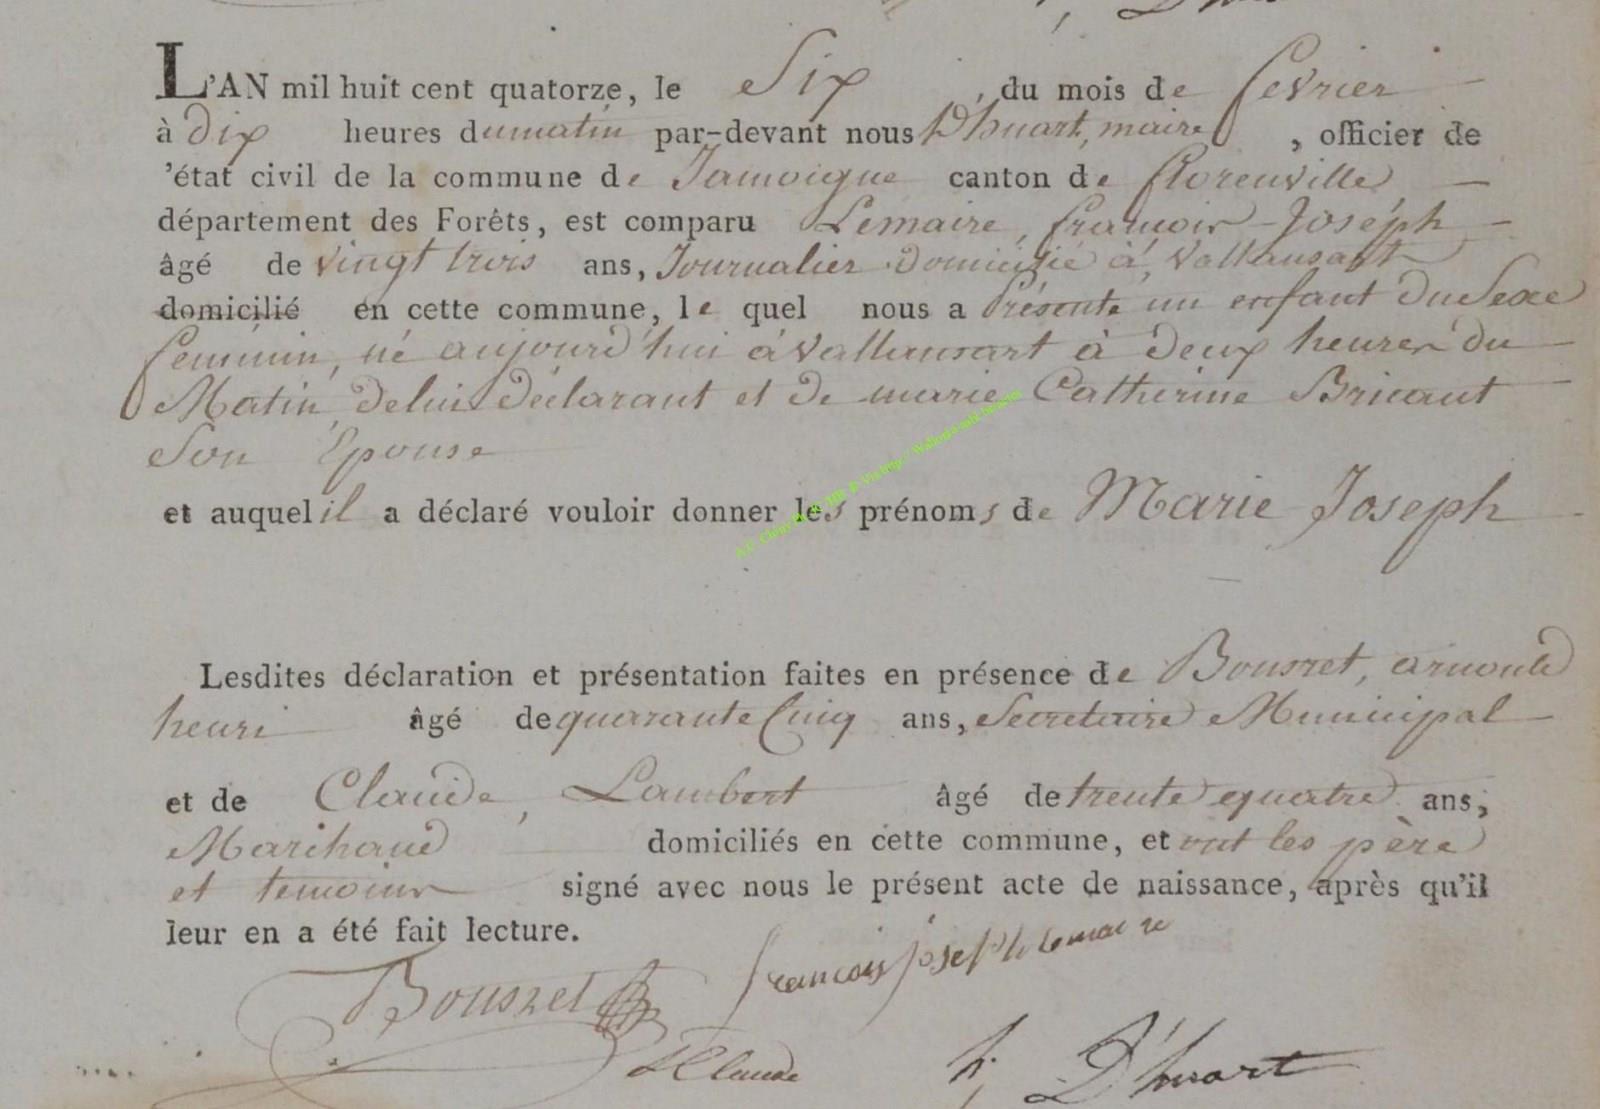 L'AN mil huit cent quatorze, le Six du mois de fevrier
à dix heures du matin par-devant nous D'huart, maire, officier de
'état civil de la commune de Jamoigne canton de florenville
département des Forêts, est comparu Lemaire, françois-Joseph
âgé de vingt trois ans, Journalier domicilié à Vallansart
domicilié en cette commune, le quel nous a Présenté un enfant du Sexe
feminin, né aujourd'hui à Vallansart à deux heures du
Matin, de lui déclarant et de marie Catherine Bricaut
Son Epouse
et auquel il a déclaré vouloir donner les prénoms de Marie Joseph
Lesdites déclaration et présentation faites en présence de Bousret, arnould
henri âgé de quarante Cinq ans, Secretaire Municipal
et de Claude, Lambert âgé de trente quatre ans,
Marchand domiciliés en cette commune, et ont les père
et temoins signé avec nous le présent acte de naissance, après qu'il
leur en a été fait lecture.
francois joseph lemaire
Bousret
Claude D'huart